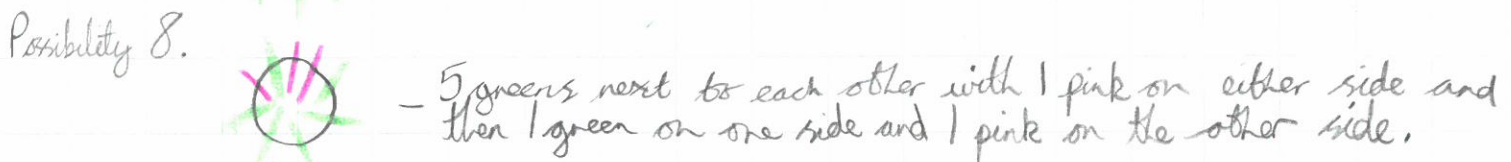 Possibility 8.
- 5 greens next to each other with 1 pink on either side and
then 1 green on one side and 1 pink on the other side.